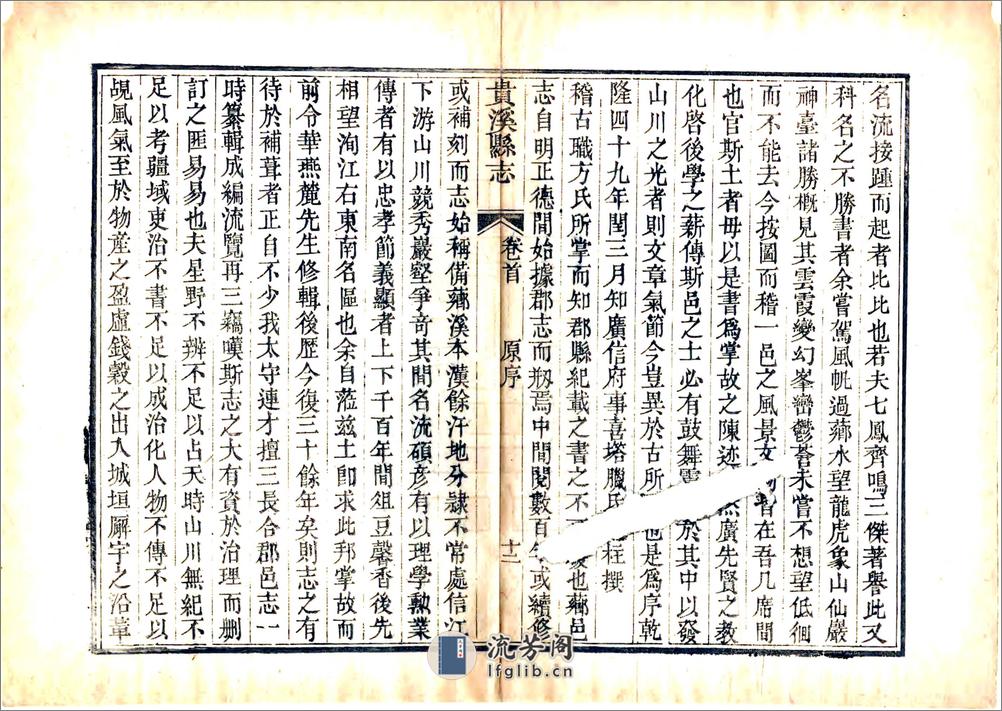 名流接踵而起者比比也若夫七鳳齊鳴三傑著譽此又
科名之不勝書者余嘗駕風帆過薌水望龍虎象山仙巖
神臺諸勝概見其雲霞變幻峯巒鬱蓊未嘗不想望低徊
而不能去今按圖而稽一邑之風景文 者在吾几席間
也官斯土者毋以是書爲掌故之陳迹 然廣先賢之教
化啓後學之薪傳斯邑之士必有鼓舞 於其中以發
山川之光者則文章氣節今豈異於古所 也是爲序乾
隆四十九年閏三月知廣信府事喜塔臘氏 桂撰
稽古職方氏所掌而知郡縣紀載之書之不 也薌邑
志自明正德間始據郡志而刱焉中間閱數百年或續修
貴溪縣志 卷首 原序 十二
或補刻而志始稱備薌溪本漢餘汗地分隷不常處信江
下游山川競秀巖壑爭奇其間名流碩彦有以理學勲業
傳者有以忠孝節義顯者上下千百年間俎豆馨香後先
相望洵江右東南名區也余自蒞茲土卽求此邦掌故而
前令華燕麓先生修輯後歷今復三十餘年矣則志之有
待於補葺者正自不少我太守連才擅三長合郡邑志一
時纂輯成編流覽再三竊嘆斯志之大有資於治理而删
訂之匪易易也夫星野不辨不足以占天時山川無紀不
足以考疆域吏治不書不足以成治化人物不傳不足以
覘風氣至於物産之盈虛錢穀之出入城垣廨宇之沿革
流芳阁
lfglib.cn